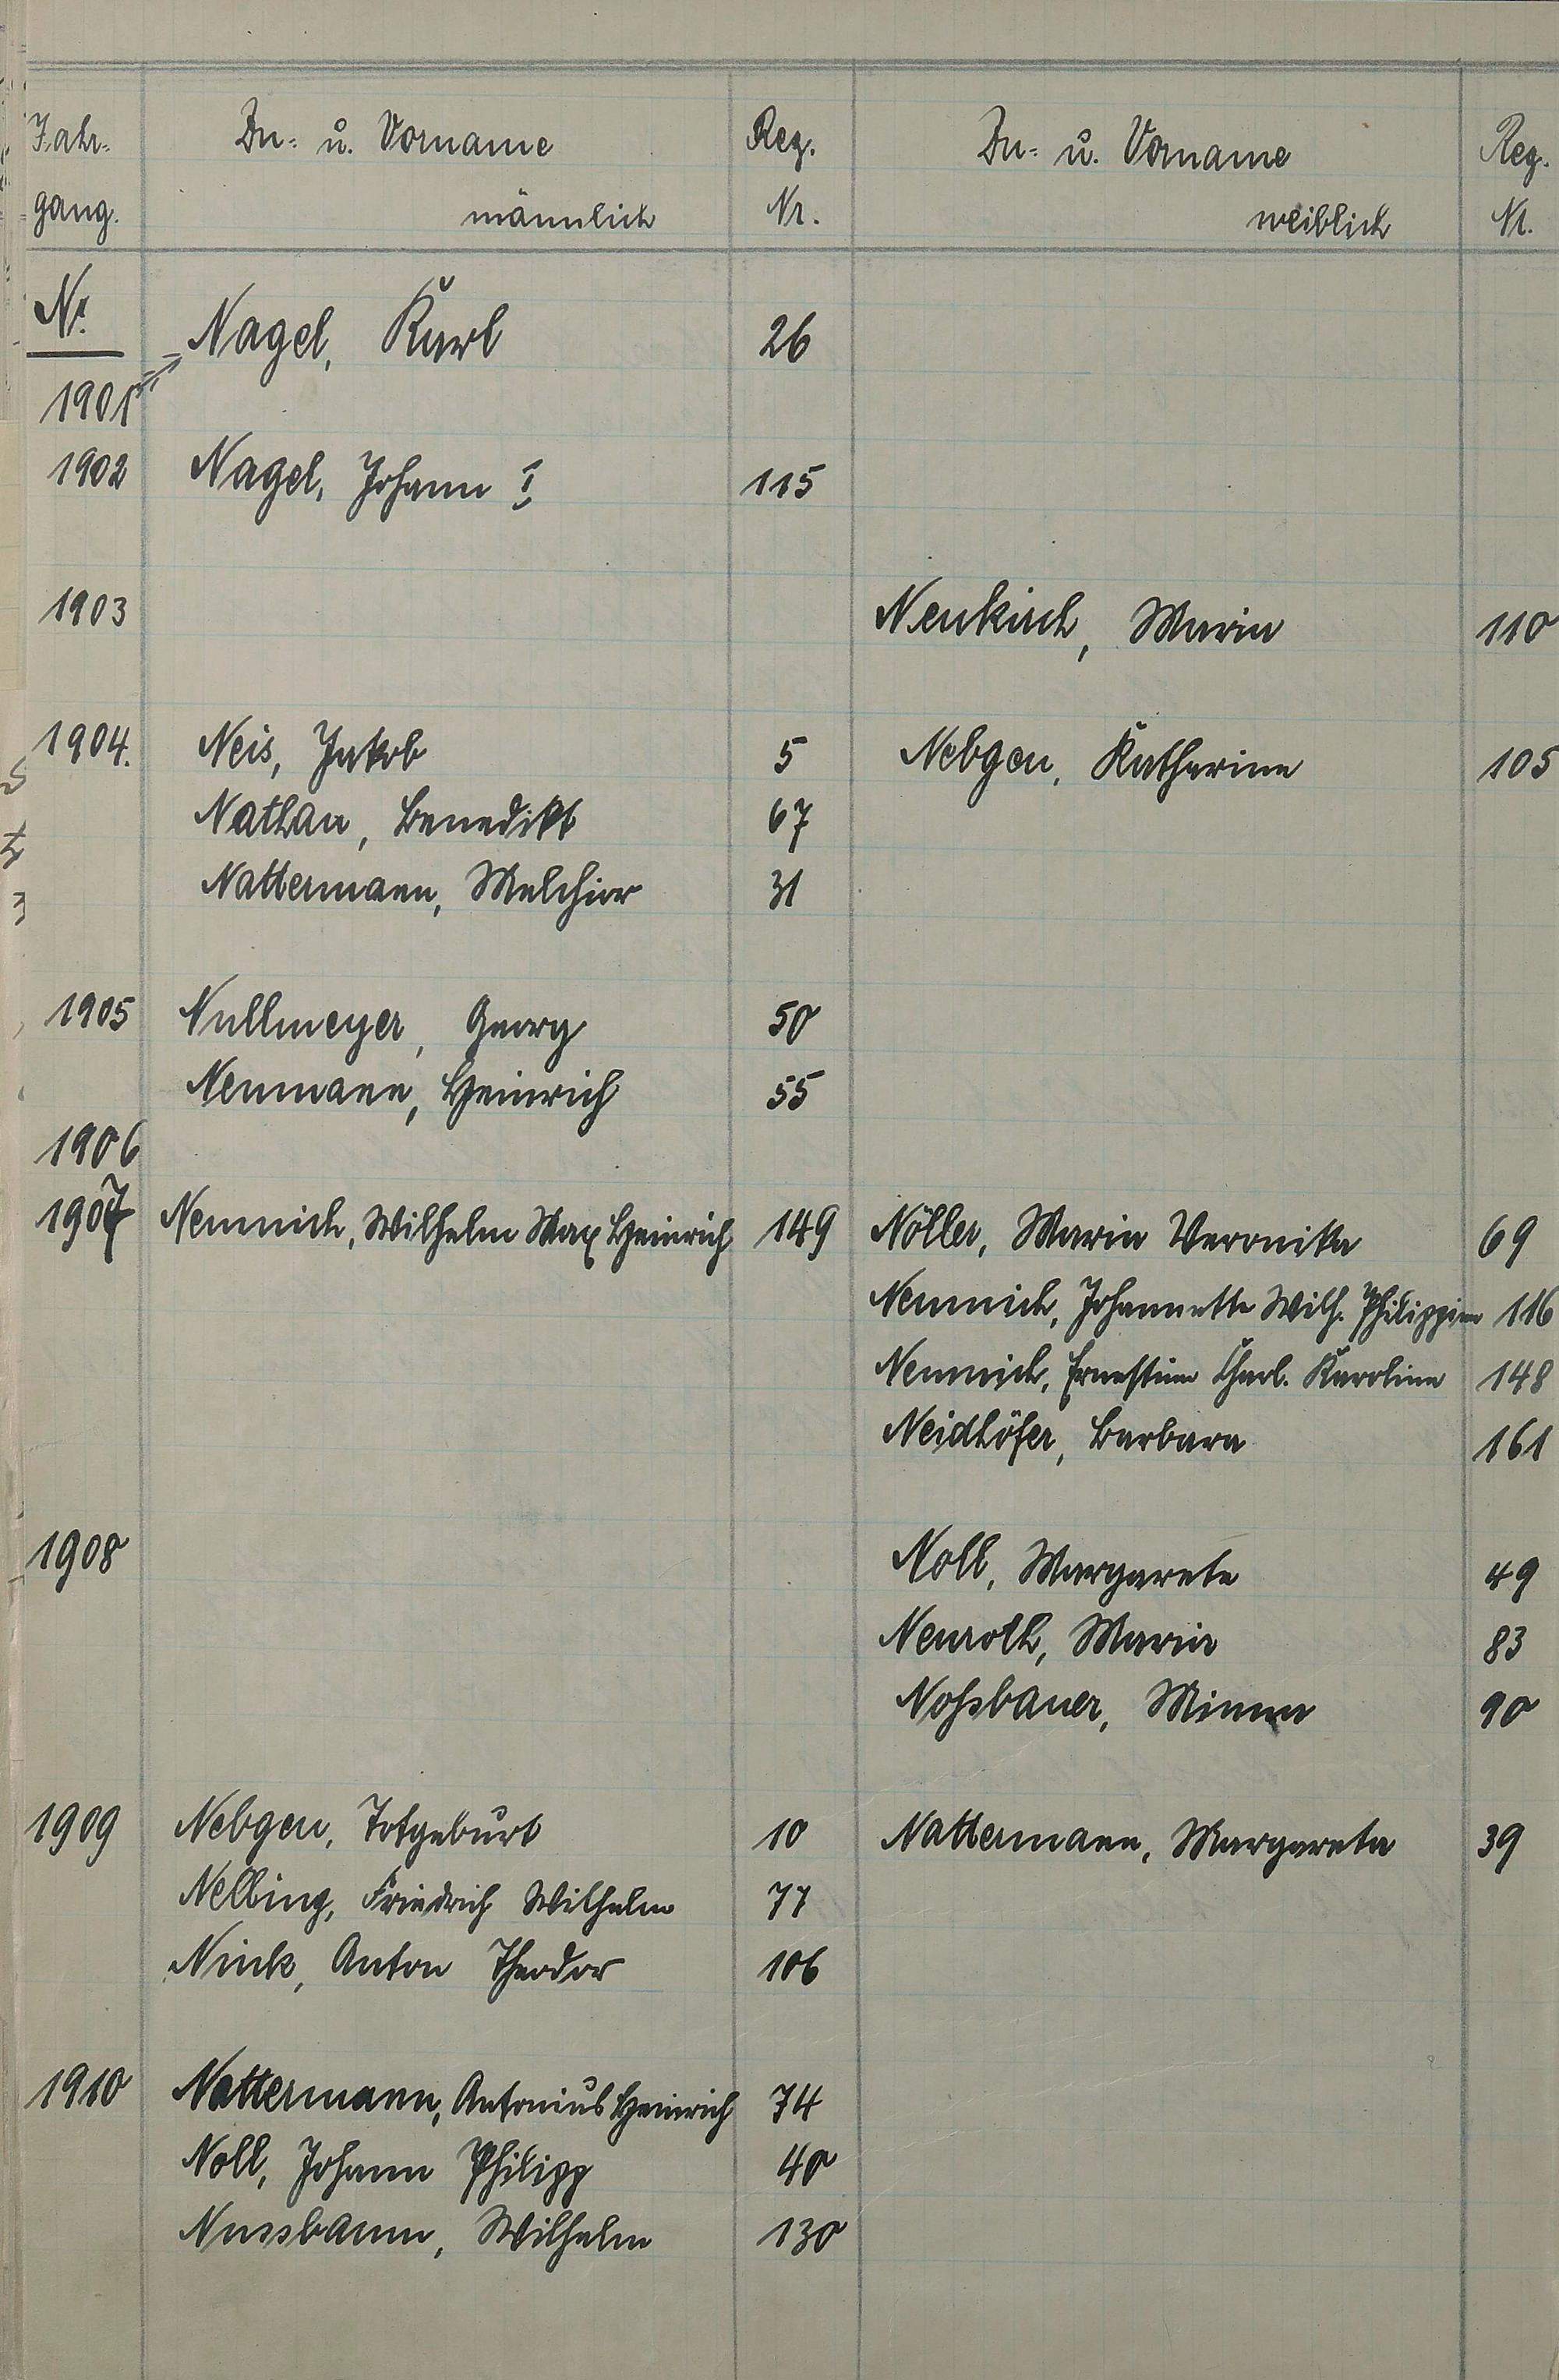 Jahr- Zu- u. Vorname Reg. Zu- u. Vorname Reg.
gang. männlich Nr. weiblich Nr.
N.
Nagel, Karl 26
1901
1902 Nagel, Johann I 115
1903 Neukirch, Maria 110
1904. Neis, Jakob 5 Nebgen, Katharina 105
Nathan, Benedikt 67
Nattermann, Melchior 31
1905 Nullmeyer, Georg 50
Neumann, Heinrich 55
1906
1907 Nemnich, Wilhelm Max Heinrich 149 Nöller, Maria Veronika 69
Nemnich, Johannette Wilh. Philippine 116
Nemnich, Ernestine Charl. Karoline 148
Neidhöfer, Barbara 161
1908 Noll, Margareta 49
Neuroth, Maria 83
Noßbauer, Minna 90
1909 Nebgen, Totgeburt 10 Nattermann, Margareta 39
Nelbing, Friedrich Wilhelm 77
Nink, Anton Theodor 106
1910 Nattermann, Antonius Heinrich 74
Noll, Johann Philipp 40
Nussbaum, Wilhelm 130